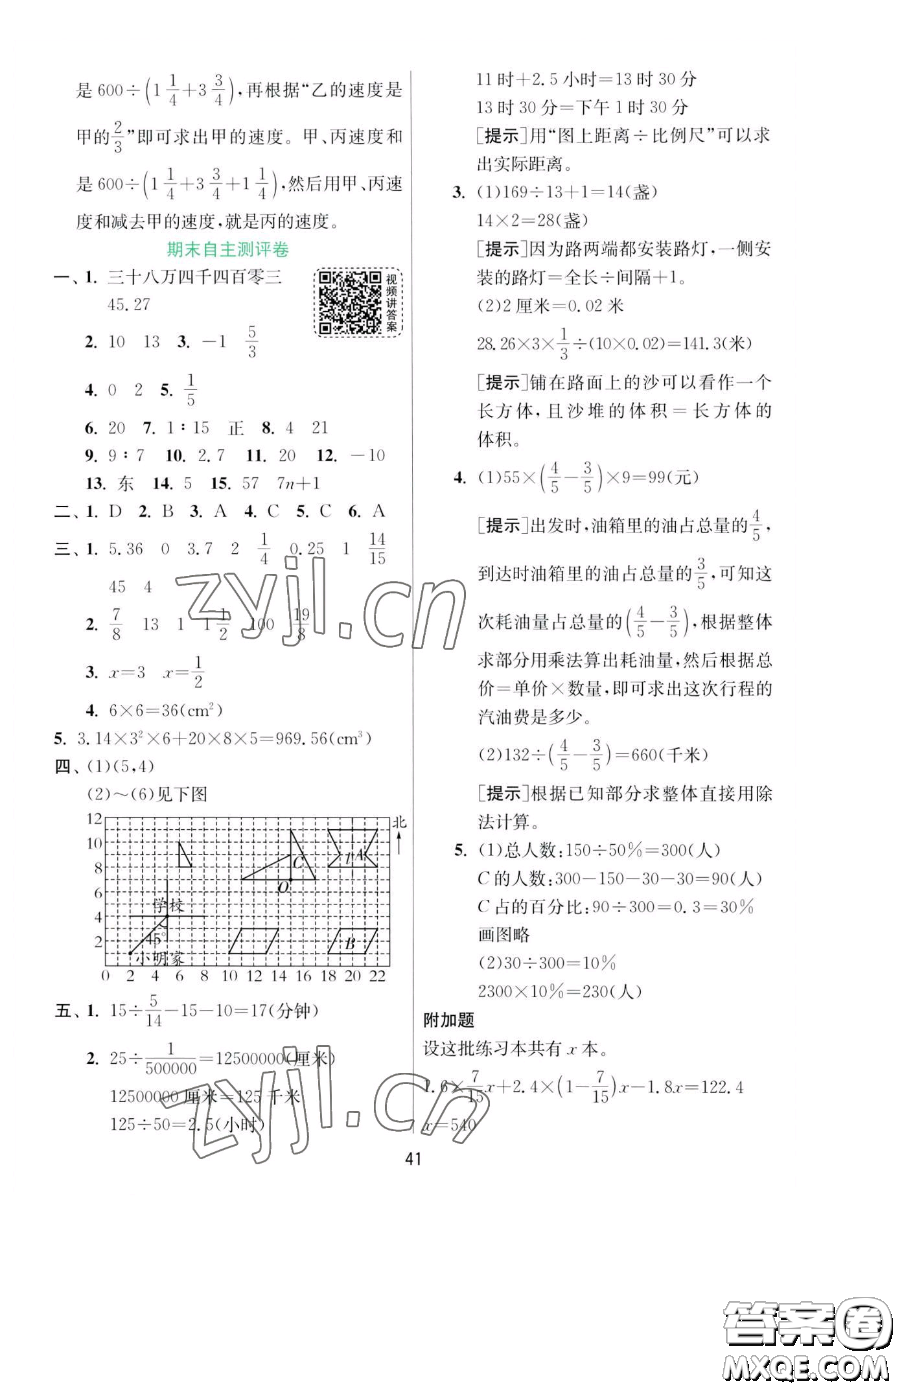 是600÷(1 1/4+3 3/4),再根据“乙的速度是
甲的2/3”即可求出甲的速度。甲、丙速度和
是600÷(1 1/4+3 3/4+1 1/4),然后用甲、丙速
度和减去甲的速度,就是丙的速度。
期末自主测评卷
一、1. 三十八万四千四百零三
45.27
视频讲答案
2. 10 13 3. －1 5/3
4. 0 2 5. 1/5
6. 20 7. 1∶15 正 8. 4 21
9. 9∶7 10. 2.7 11. 20 12. －10
13. 东 14. 5 15. 57 7n+1
二、1. D 2. B 3. A 4. C 5. C 6. A
三、1. 5.36 0 3.7 2 1/4 0.25 1 14/15
45 4
2. 7/8 13 1 1 1/2 100 19/8
3. x=3 x=1/2
4. 6×6=36(cm²)
5. 3.14×3²×6+20×8×5=969.56(cm³)
四、(1)(5,4)
(2)～(6)见下图
12
10
8
6
4
2
北
C
1 A
O
学校
45°
小明家
B
0 2 4 6 8 10 12 14 16 18 20 22
五、1. 15÷5/14－15－10=17(分钟)
2. 25÷1/500000=12500000(厘米)
12500000厘米=125千米
125÷50=2.5(小时)
11时+2.5小时=13时30分
13时30分=下午1时30分
[提示]用“图上距离÷比例尺”可以求
出实际距离。
3. (1)169÷13+1=14(盏)
14×2=28(盏)
[提示]因为路两端都安装路灯,一侧安
装的路灯=全长÷间隔+1。
(2)2厘米=0.02米
28.26×3×1/3÷(10×0.02)=141.3(米)
[提示]铺在路面上的沙可以看作一个
长方体,且沙堆的体积=长方体的
体积。
4. (1)55×(4/5－3/5)×9=99(元)
[提示]出发时,油箱里的油占总量的4/5,
到达时油箱里的油占总量的3/5,可知这
次耗油量占总量的(4/5－3/5),根据整体
求部分用乘法算出耗油量,然后根据总
价=单价×数量,即可求出这次行程的
汽油费是多少。
(2)132÷(4/5－3/5)=660(千米)
[提示]根据已知部分求整体直接用除
法计算。
5. (1)总人数:150÷50%=300(人)
C的人数:300－150－30－30=90(人)
C占的百分比:90÷300=0.3=30%
画图略
(2)30÷300=10%
2300×10%=230(人)
附加题
设这批练习本共有x本。
1.6×7/15x+2.4×(1－7/15)x－1.8x=122.4
x=540
41
zyjl.cn
zyjl.cn
答案圈
MXQE.COM